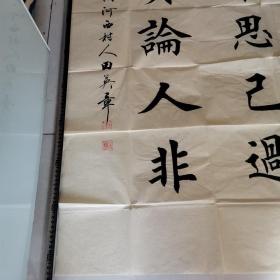 思己過
論人非
河西村人田英章